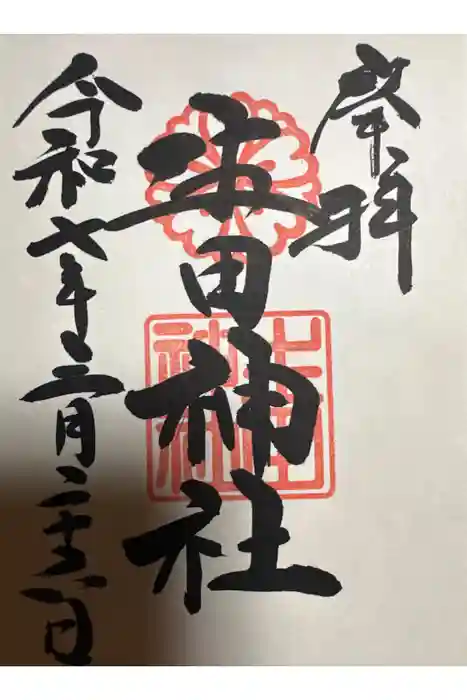 奉拝
田神社
神社
令和七年三月二十六日